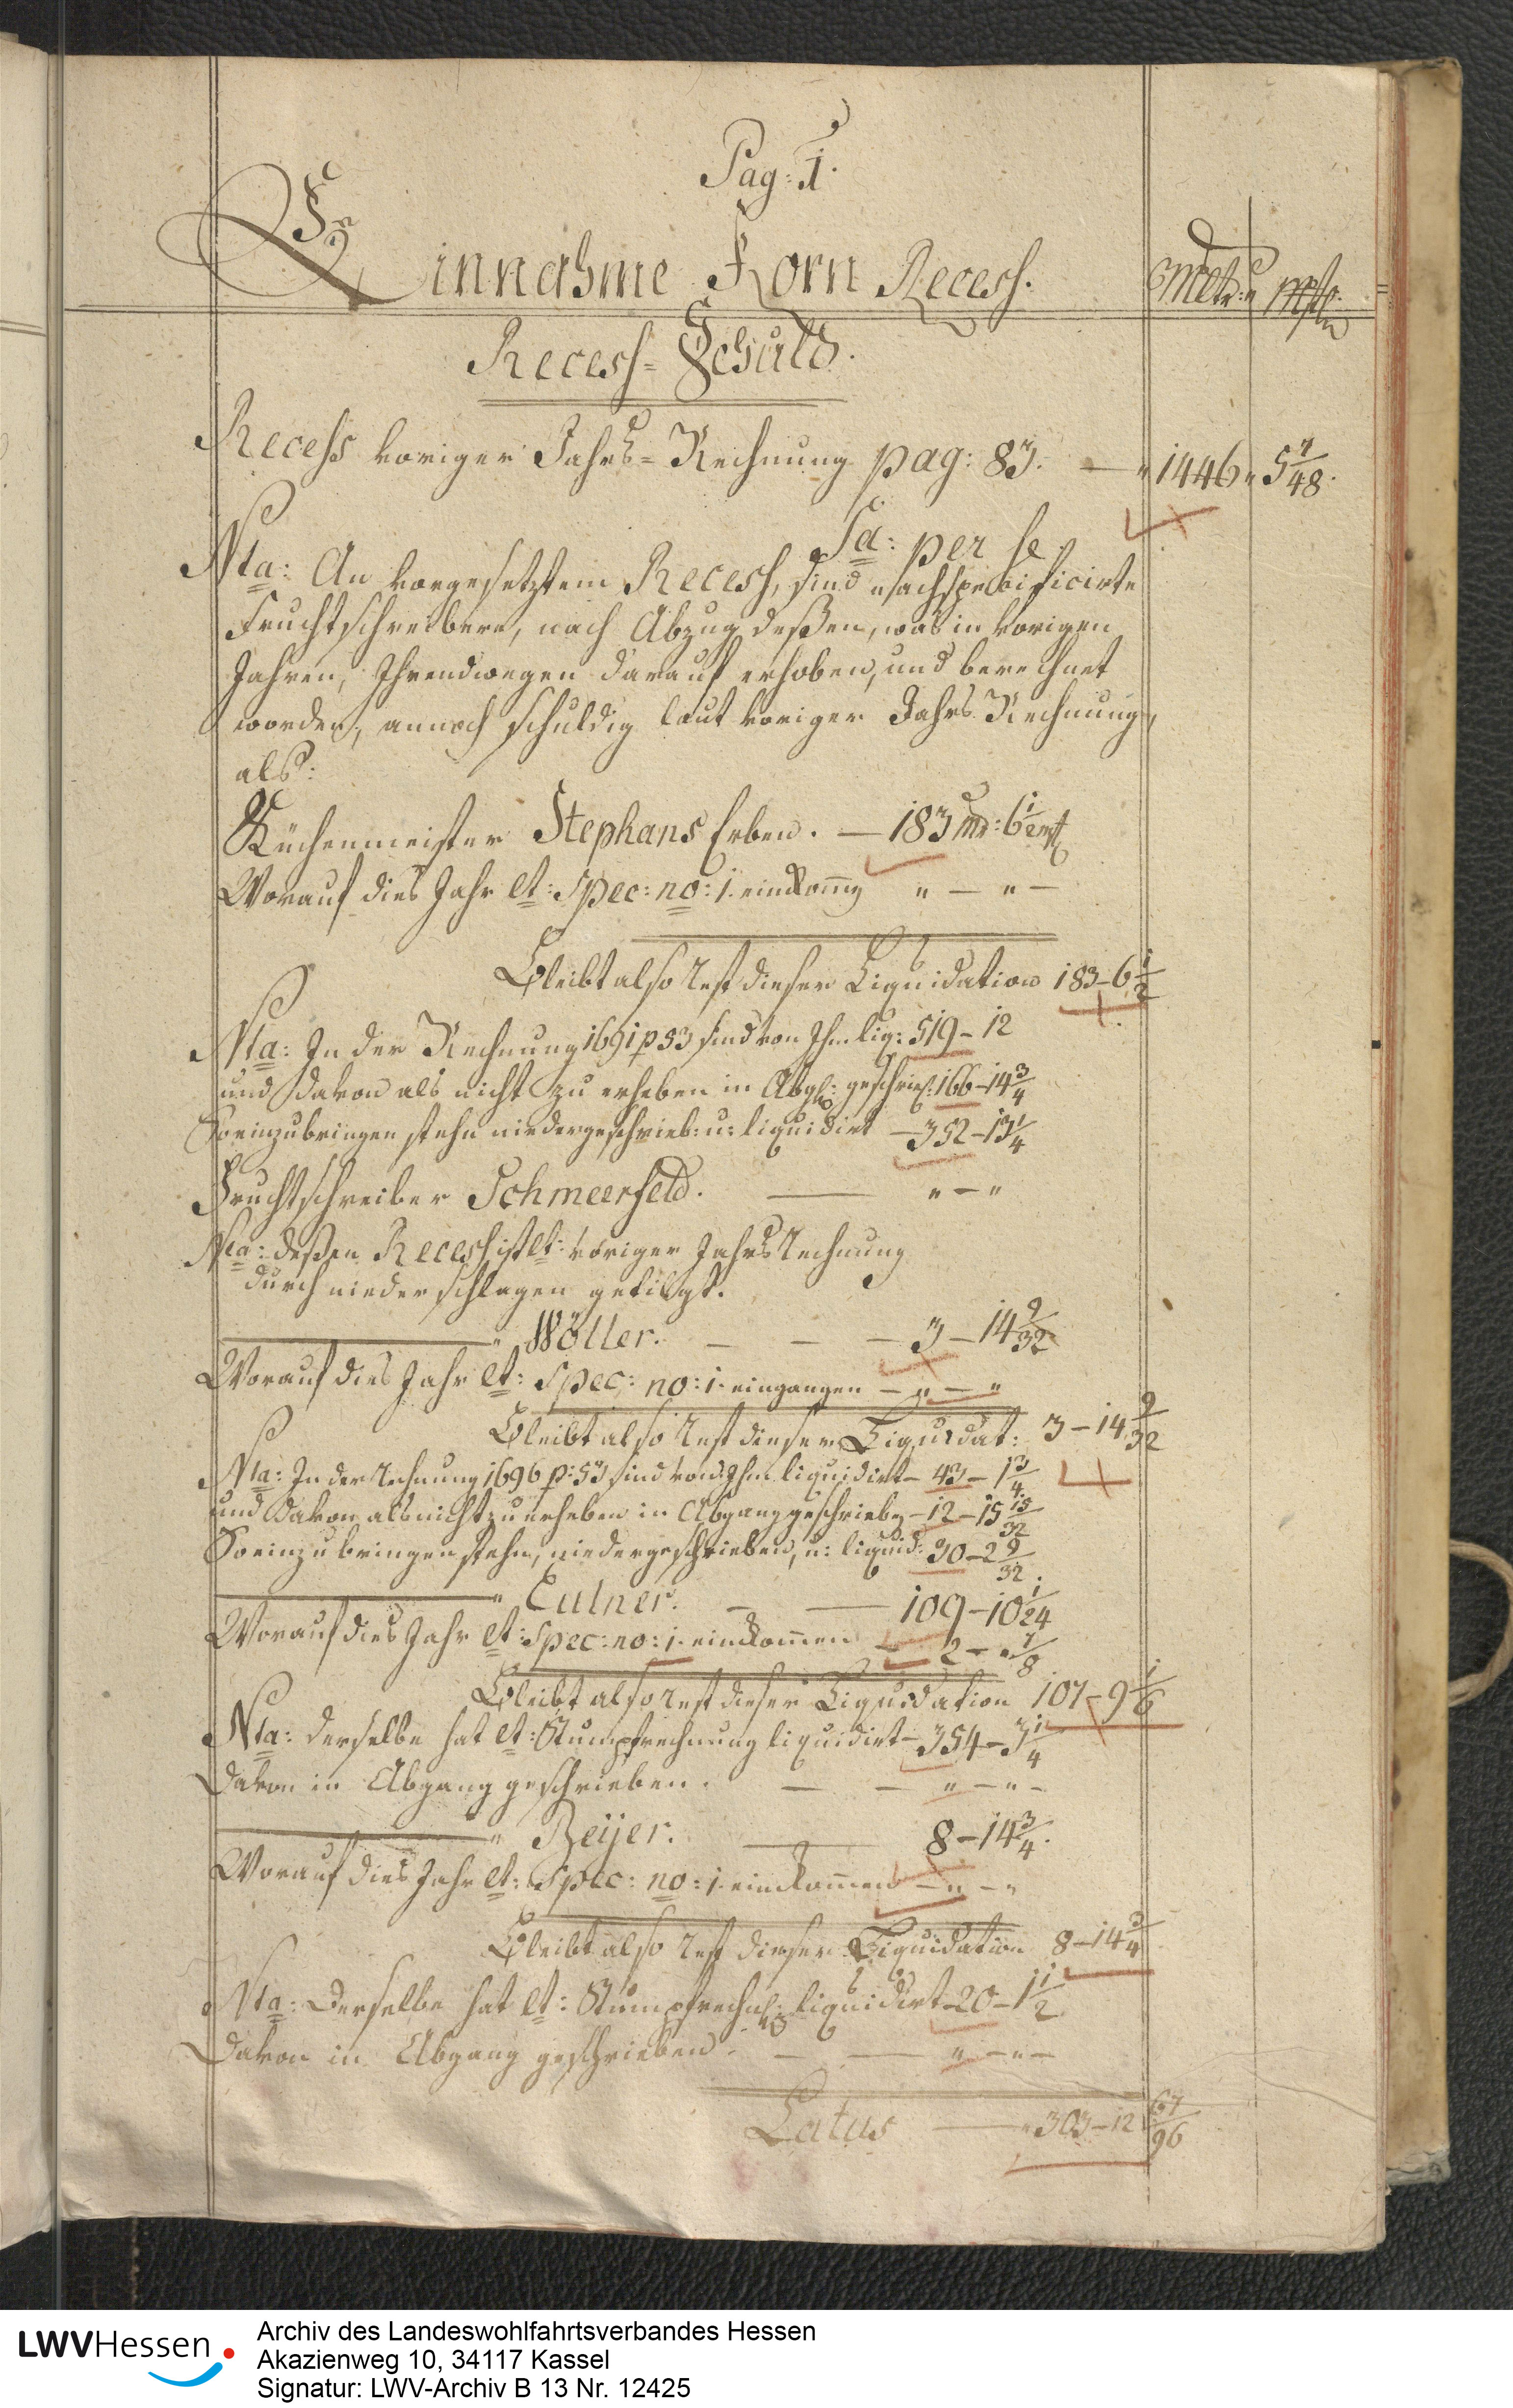 Pag: 1.
Einnahme Korn Recess.
Recess-Schuld.
Recess voriger Jahrs-Rechnung pag: 83. — 1446 „ 5 7/48.
Sa: per se
Nta: An vorgesetztem Recess, sind nachspecificirte
Fruchtschreibere, nach Abzug deßen, was in vorigen
Jahren, Ihrendwegen darauf erhoben, und berechnet
worden, annoch schuldig laut voriger Jahrs Rechnung,
als:
Küchenmeister Stephans Erben. — 183 : 6 1/2
Worauf dies Jahr lt: Spec: no: 1. einkom̄en „ — „ —
Bleibt also Rest dieser Liquidation 183 - 6 1/2
Nta: In der Rechnung 1691 p 53 sind von Ihm liq: 519 - 12
und davon als nicht zu erheben in Abg: geschrieb: 166 - 14 3/4
So einzubringen stehn niedergeschrieb: u: liquidirt — 352 - 13 1/4
Fruchtschreiber Schmeerfeld. — „ — „
Nta: deßen Recess ist lt: voriger Jahrs Rechnung
durch niederschlagen getilgt.
— „ Wöller. — — — 3 - 14 9/32
Worauf dies Jahr lt: Spec: no: 1. eingangen — „ — „
Bleibt also Rest dieser Liquidat: 3 - 14 9/32
Nta: In der Rechnung 1696 p: 53 sind von Ihm liquidirt - 43 - 1 3/4
und davon als nicht zu erheben in Abgang geschrieben - 12 - 15 15/32
So einzubringen stehn, niedergeschrieben, u: liquid: 30 - 2 9/32.
— „ Eulner. — — 109 - 10 1/24
Worauf dies Jahr lt: Spec: no: 1. einkommen — 2 - „ 7/8
Bleibt also Rest dieser Liquidation 107 - 9 1/6
Nta: derselbe hat lt: Stumpfrechnung liquidirt - 354 - 3 1/4
Davon in Abgang geschrieben. — — „ — „ —
— „ Beijer. — 8 - 14 3/4.
Worauf dies Jahr lt: Spec: no: 1. einkommen — „ — „
Bleibt also Rest dieser Liquidation 8 - 14 3/4
Nta: Derselbe hat lt: Stumpfrechn: liquidirt - 20 - 1 1/2
Davon in Abgang geschrieben. — — „ — „ —
Latus — „ 303 - 12 67/96
LWVHessen
Archiv des Landeswohlfahrtsverbandes Hessen
Akazienweg 10, 34117 Kassel
Signatur: LWV-Archiv B 13 Nr. 12425